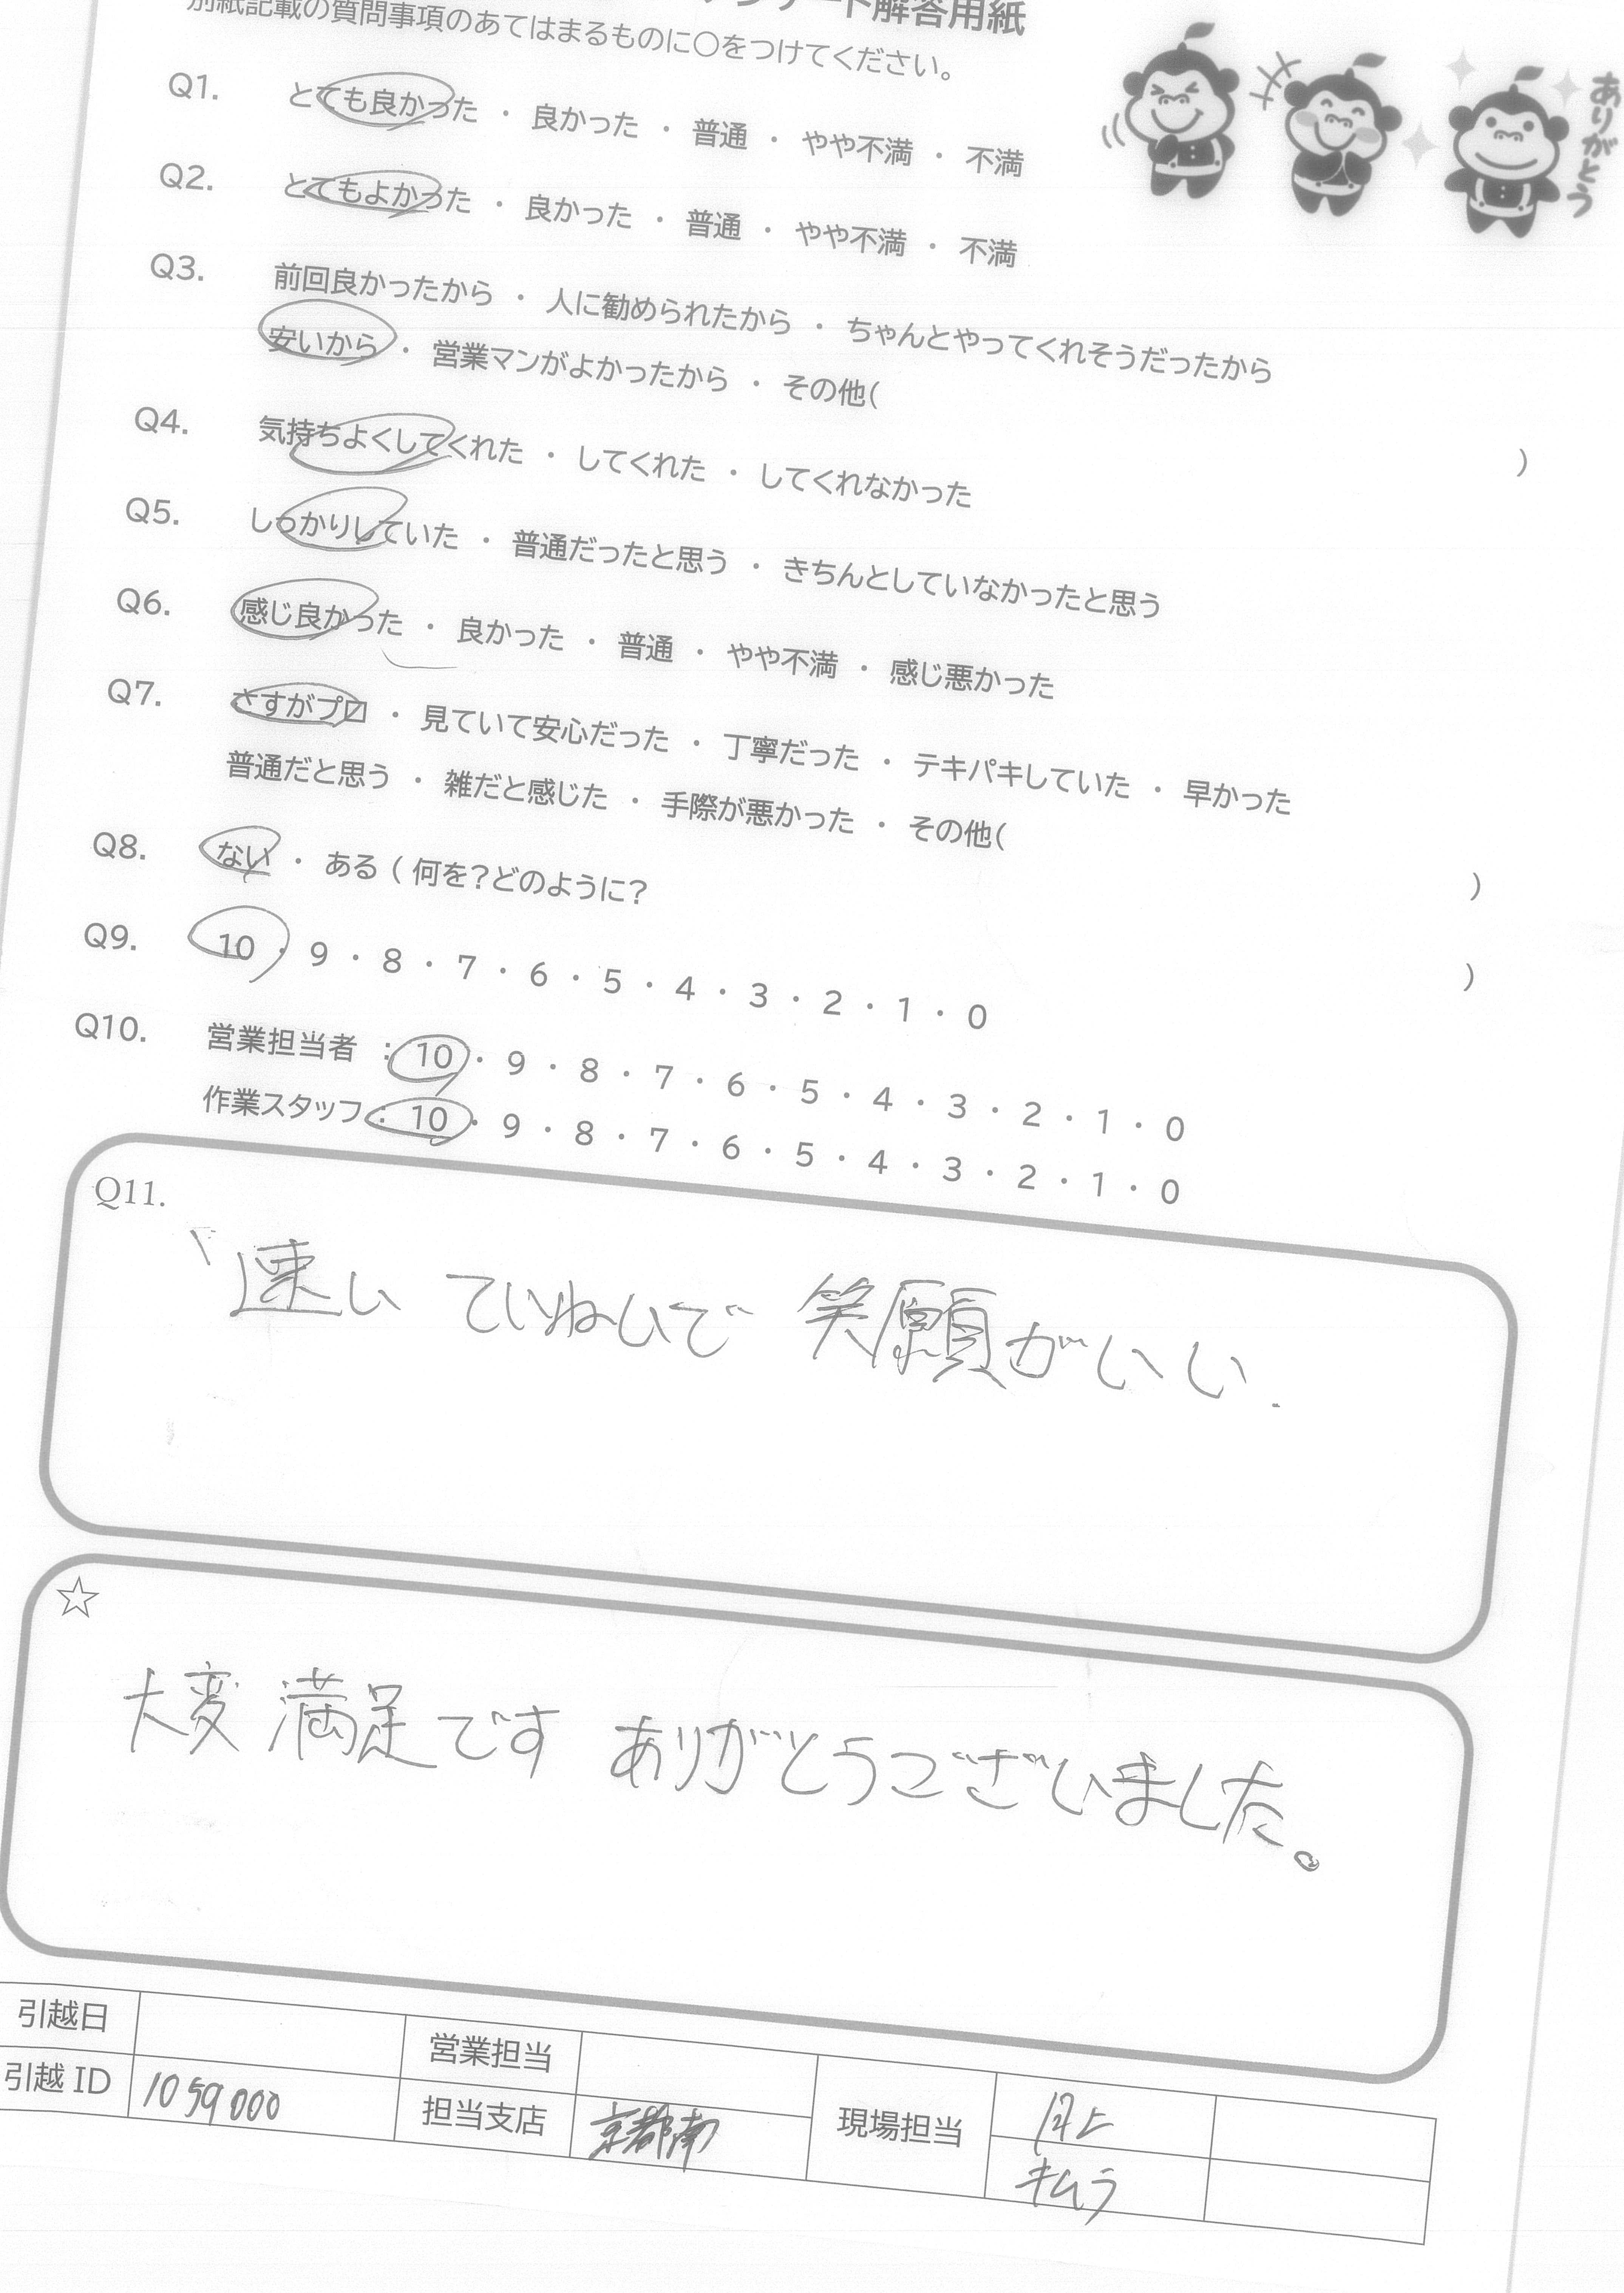 ンケート解答用紙
別紙記載の質問事項のあてはまるものに○をつけてください。
ありがとう
Q1. とても良かった ・ 良かった ・ 普通 ・ やや不満 ・ 不満
Q2. とてもよかった ・ 良かった ・ 普通 ・ やや不満 ・ 不満
Q3. 前回良かったから ・ 人に勧められたから ・ ちゃんとやってくれそうだったから
安いから ・ 営業マンがよかったから ・ その他( )
Q4. 気持ちよくしてくれた ・ してくれた ・ してくれなかった
Q5. しっかりしていた ・ 普通だったと思う ・ きちんとしていなかったと思う
Q6. 感じ良かった ・ 良かった ・ 普通 ・ やや不満 ・ 感じ悪かった
Q7. さすがプロ ・ 見ていて安心だった ・ 丁寧だった ・ テキパキしていた ・ 早かった
普通だと思う ・ 雑だと感じた ・ 手際が悪かった ・ その他( )
Q8. ない ・ ある ( 何を?どのように? )
Q9. 10 ・ 9 ・ 8 ・ 7 ・ 6 ・ 5 ・ 4 ・ 3 ・ 2 ・ 1 ・ 0
Q10. 営業担当者 : 10 ・ 9 ・ 8 ・ 7 ・ 6 ・ 5 ・ 4 ・ 3 ・ 2 ・ 1 ・ 0
作業スタッフ : 10 ・ 9 ・ 8 ・ 7 ・ 6 ・ 5 ・ 4 ・ 3 ・ 2 ・ 1 ・ 0
Q11.
速い ていねいで 笑顔がいい.
☆
大変満足です ありがとうございました。
引越日 営業担当
引越 ID 1059000 担当支店 京都南 現場担当
キムラ